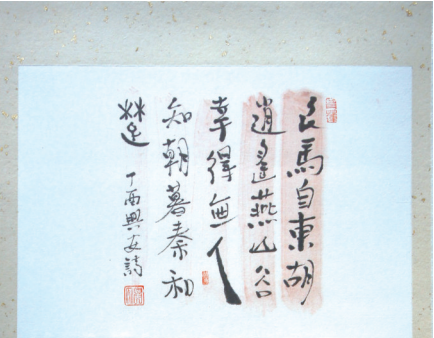 良馬自東胡
逍遙燕山谷
幸得無人
知朝暮秦和
楚
丁酉興安詩